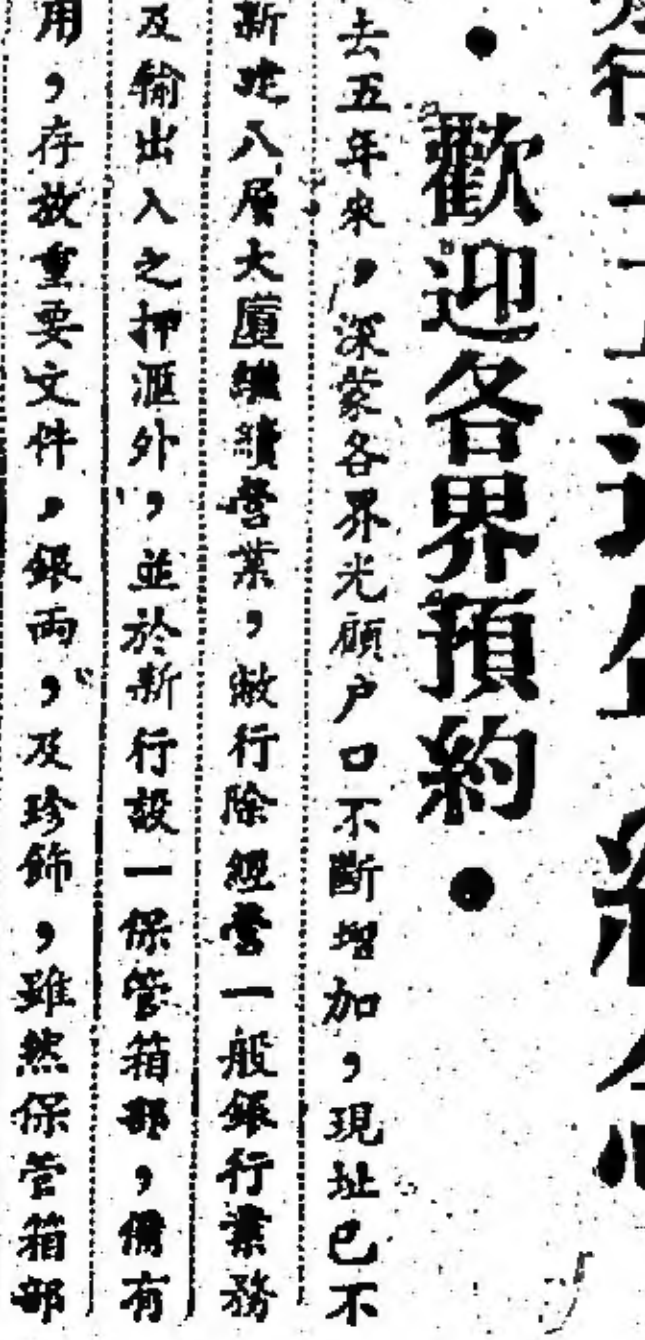 •歡迎各界預約•
去五年來，深蒙各界光顧户口不斷增加，現址已不
新建八層大廈繼續營業，敝行除經營一般銀行業務
及輸出入之押滙外，並於新行設一保管箱部，備有
用，存放重要文件，銀両，及珍飾，雖然保管箱部